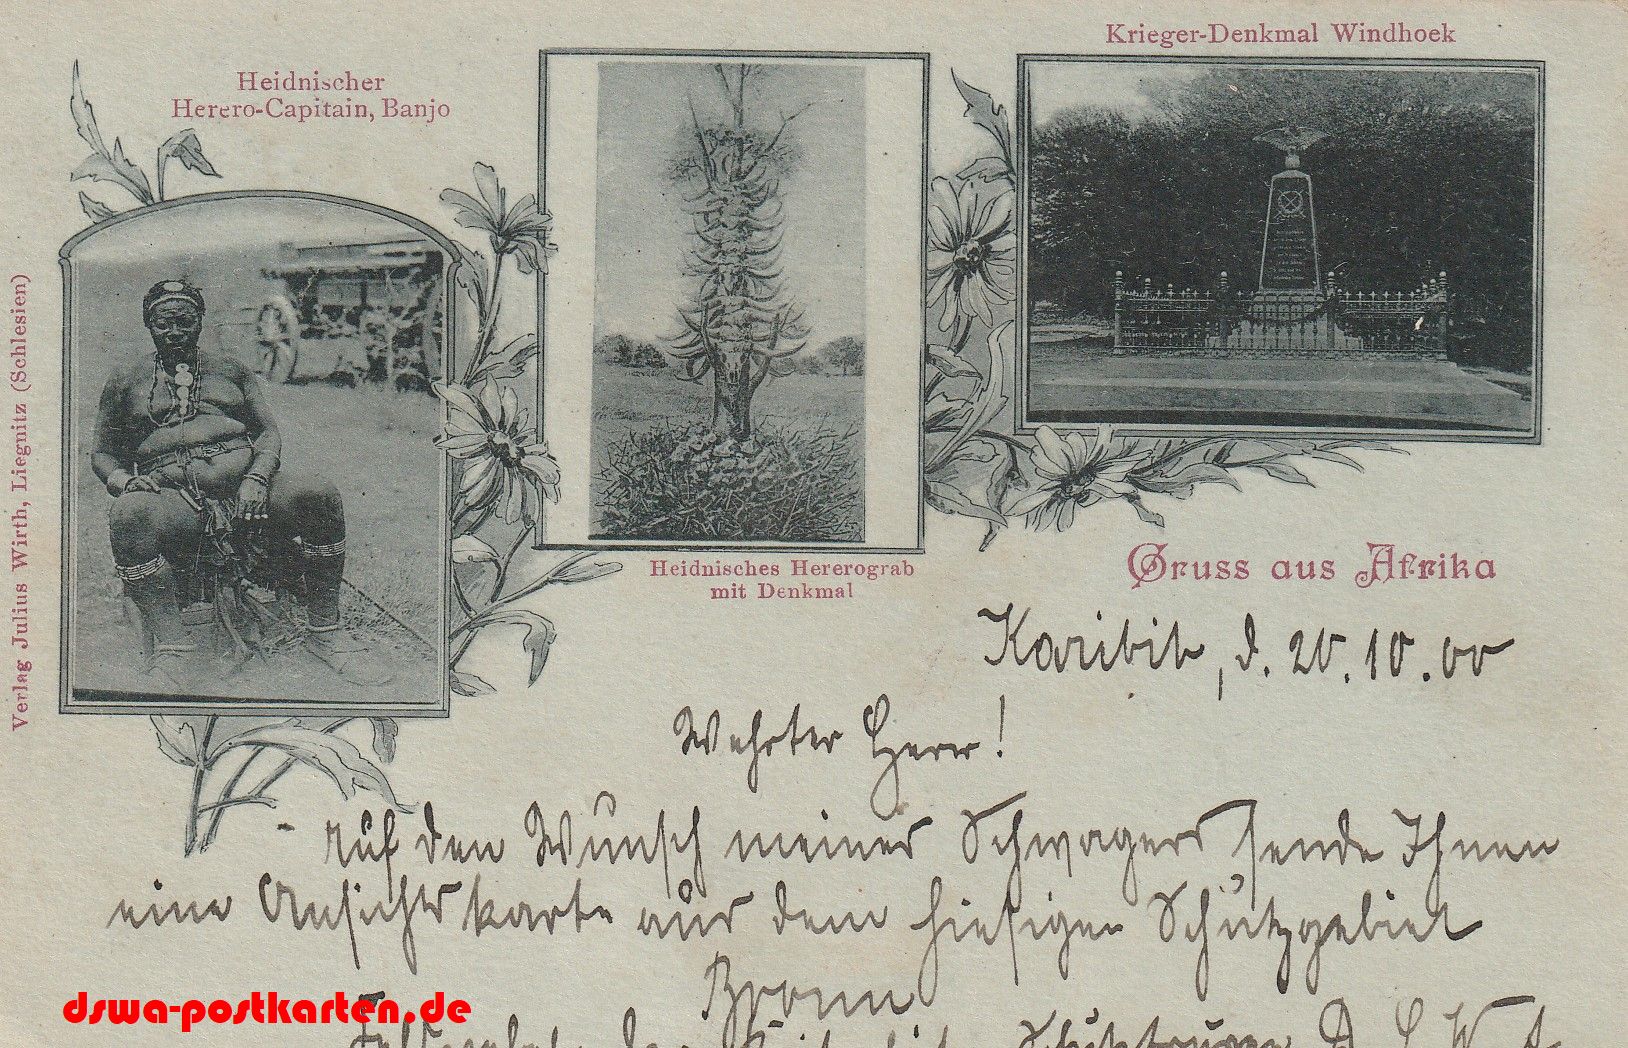 Heidnischer
Herero-Capitain, Banjo
Krieger-Denkmal Windhoek
Verlag Julius Wirth, Liegnitz (Schlesien)
Heidnisches Hererograb
mit Denkmal
Gruss aus Afrika
Karibib, d. 20.10.00
Wehrter Herr!
Auf den Wunsch meines Schwagers sende Ihnen
eine Ansichtskarte aus dem hiesigen Schutzgebiet
dswa-postkarten.de